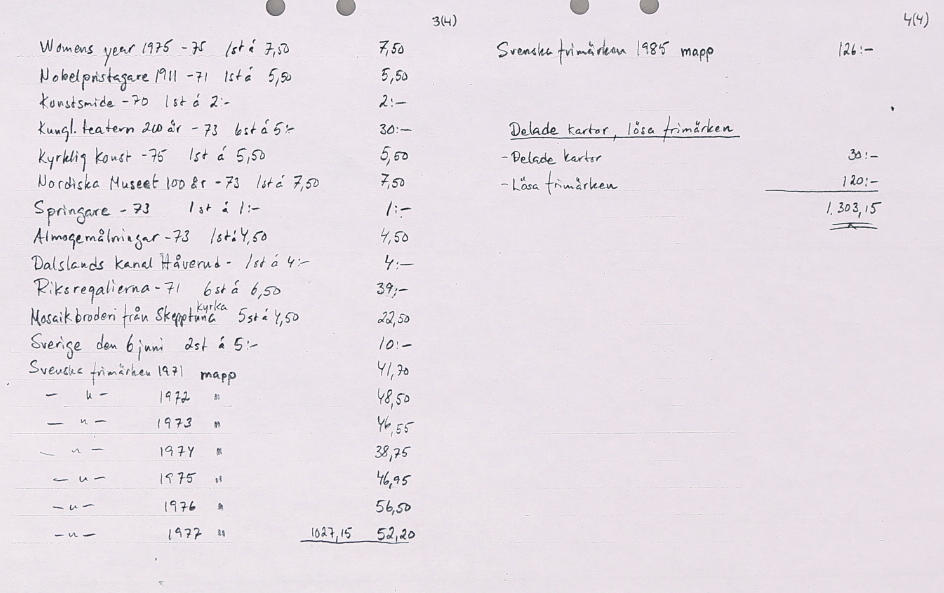 3(4)
Womens year 1975 -75 1st á 7,50 7,50
Nobelpristagare 1911 -71 1st á 5,50 5,50
Konstsmide -70 1st á 2:- 2:-
Kungl. teatern 200 år - 73 6st á 5:- 30:-
Kyrklig konst -75 1st á 5,50 5,50
Nordiska Museet 100 år -73 1st á 7,50 7,50
Springare -73 1st á 1:- 1:-
Allmogemålningar -73 1st á 4,50 4,50
Dalslands kanal Håverud - 1st á 4:- 4:-
Riksregalierna -71 6st á 6,50 39:-
Mosaikbroderi från Skepptuna kyrka 5st á 4,50 22,50
Sverige den 6 juni 2st á 5:- 10:-
Svenska frimärken 1971 mapp 41,70
- " - 1972 " 48,50
- " - 1973 " 46,55
- " - 1974 " 38,75
- " - 1975 " 46,95
- " - 1976 " 56,50
- " - 1977 " 1027,15 52,20
4(4)
Svenska frimärken 1985 mapp 126:-
Delade kartor, lösa frimärken
- Delade kartor 30:-
- Lösa frimärken 120:-
1.303,15